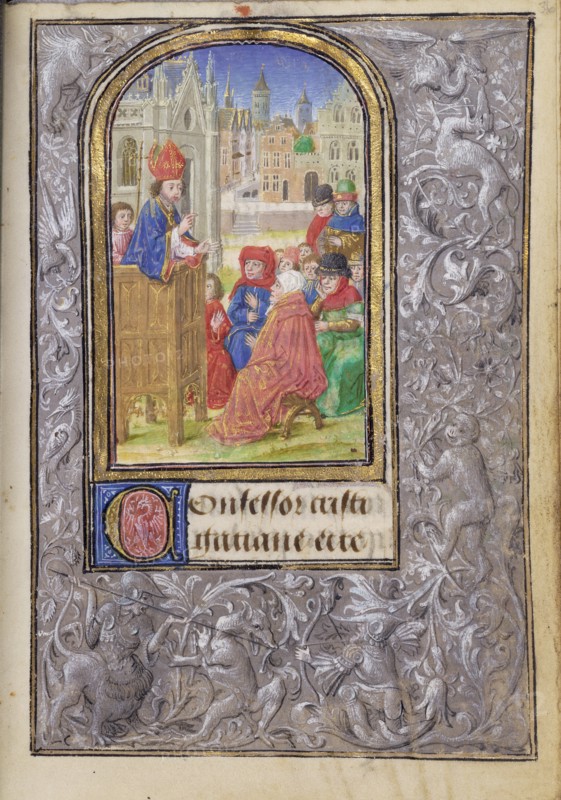 COnfessor cristi
gatiane ecce